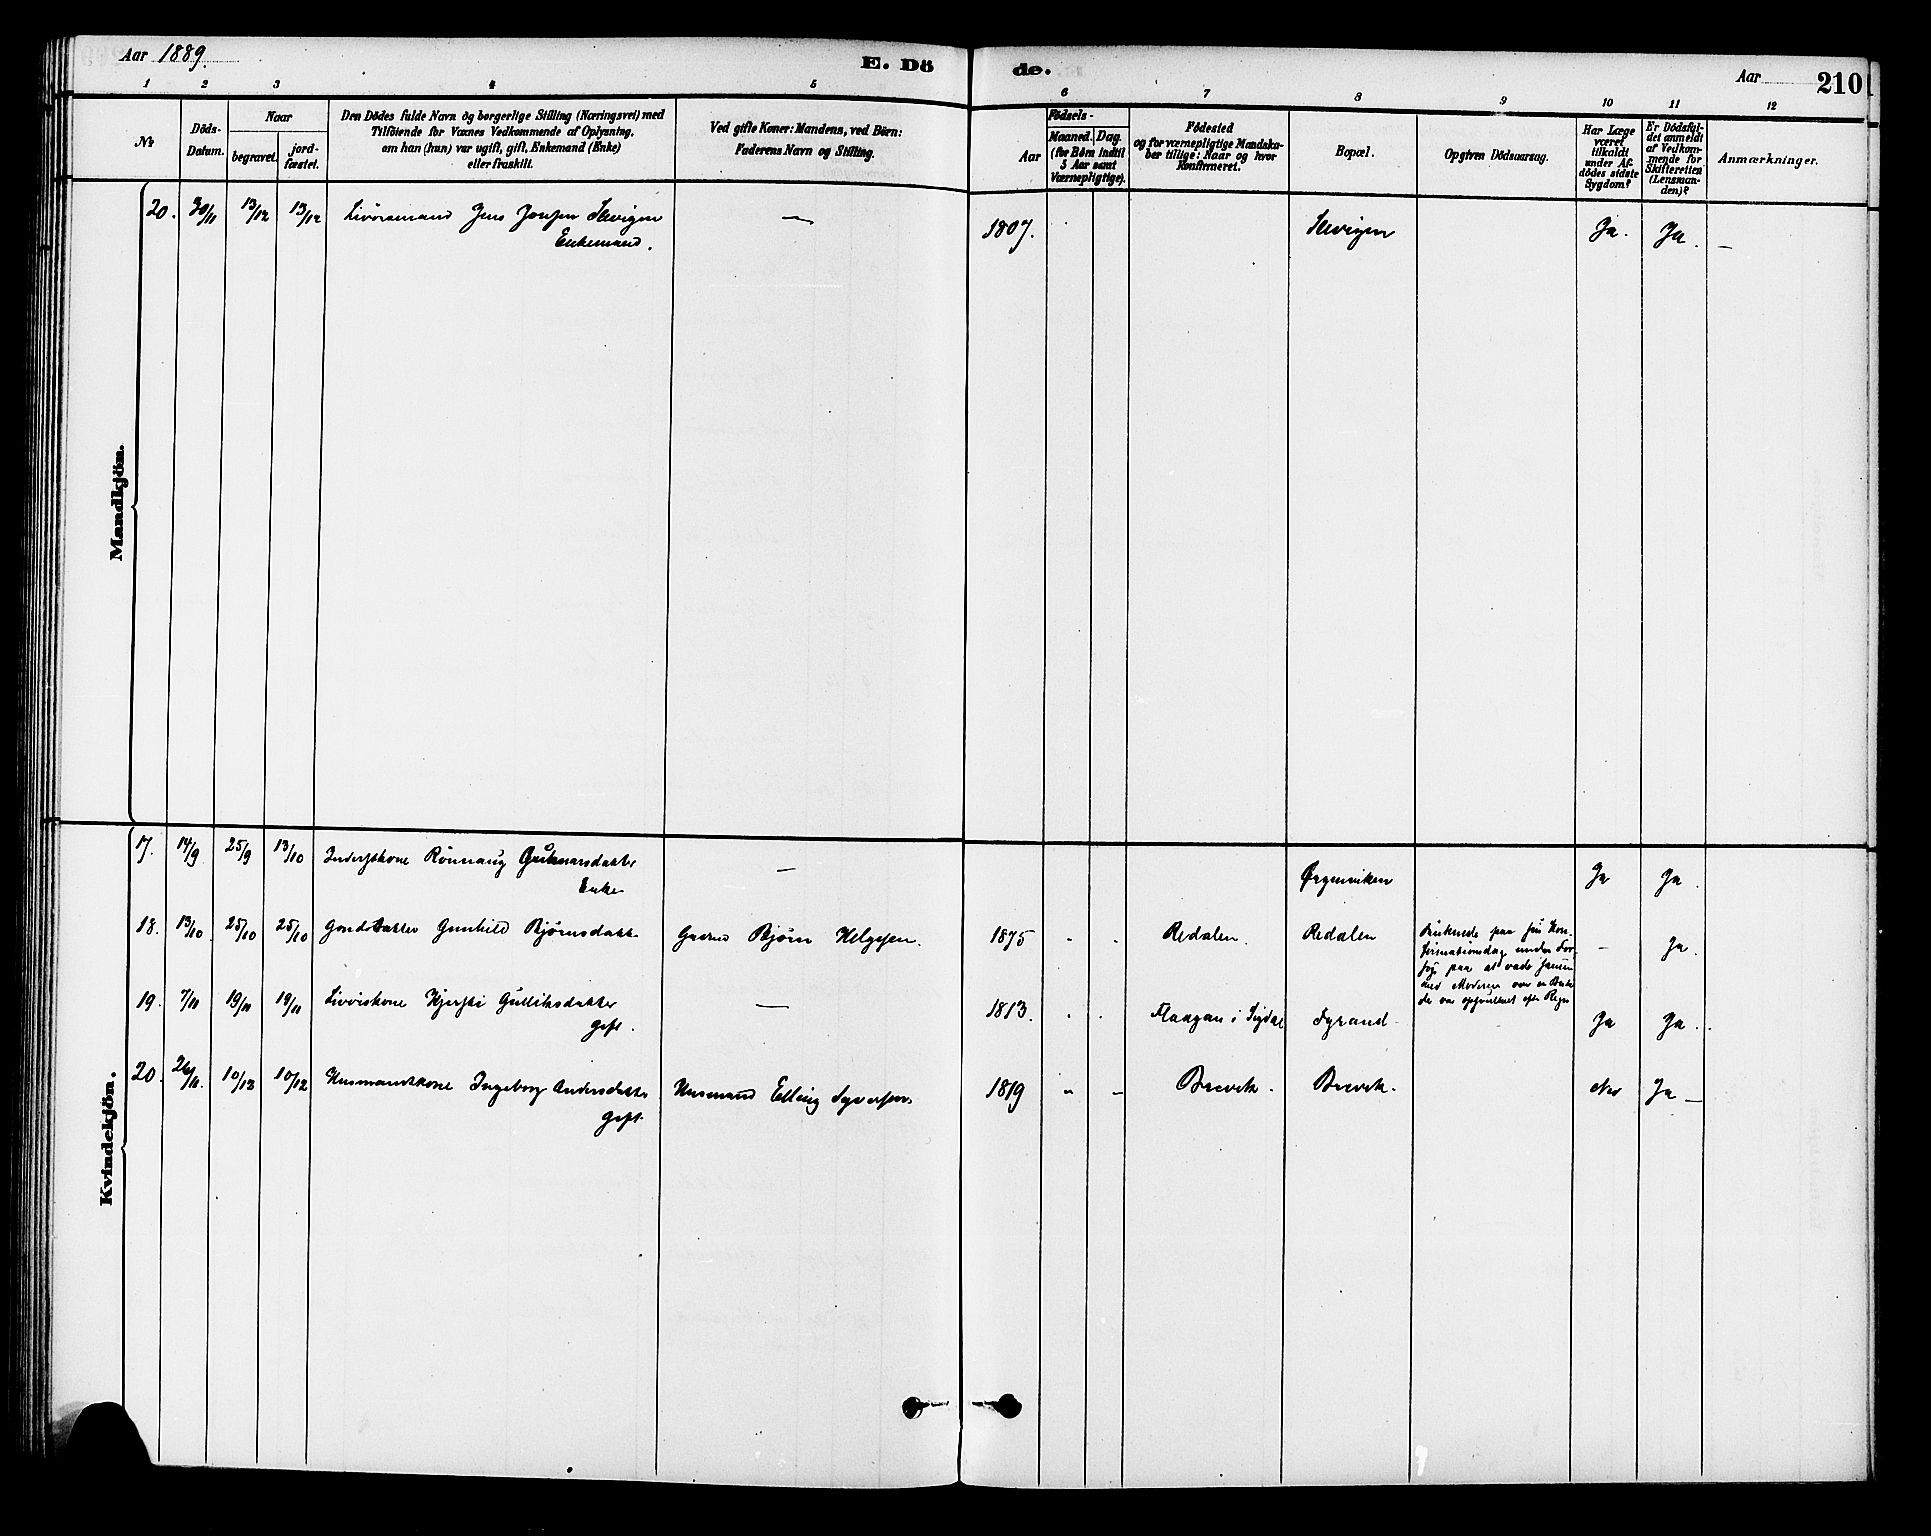 Aar 1889.
E. Dö
de.
Aar
210
1 2 3 4 5
6 7 8 9 10 11 12
No
Döds-
Datum.
Naar
begravet.
jord-
fæstet.
Den Dödes fulde Navn og borgerlige Stilling (Næringsvei) med
Tilföiende for Voxnes Vedkommende af Oplysning,
om han (hun) var ugift, gift, Enkemand (Enke)
eller fraskilt.
Ved gifte Koner: Mandens, ved Börn:
Faderens Navn og Stilling.
Födsels-
Aar
Maaned.
Dag.
(for Börn indtil
5 Aar samt
Værnepligtige).
Födested
og for værnepligtige Mandska-
ber tillige: Naar og hvor
Konfirmeret.
Bopæl.
Opgiven Dödsaarsag.
Har Læge
været
tilkaldt
under Af-
dödes sidste
Sygdom?
Er Dödsful-
det anmeldt
af Vedkom-
mende for
Skifteretten
(Lensman-
den)?
Anmærkninger.
Mandkjön.
20. 30/11 13/12 13/12 Jens — 1807. Ja. Ja. —
Enkemand.
Kvindekjön.
17. 14/9 25/9 13/10 Rönnaug Gunnarsdatter — Ørgenviken Ja Ja.
Enke
18. 13/10 25/10 25/10 Gunhild Bjørnsdatt. Gaard Bjørn Helgesen. 1875 Redalen. Redalen — Ja.
Druknede paa sin Kon-
firmationsdag under For-
søg paa at vade
med Moderen over en
efter Regn
19. 7/11 19/11 19/11 Kjersti Gulliksdatter — 1813. i Sigdal Fyrand Ja Ja.
gift.
20. 26/11. 10/12 10/12 Husmandskone Ingeborg Andersdatter Husmand Elling Syversen 1819 " — Brevik. Brevik. Nei Ja —
gift.